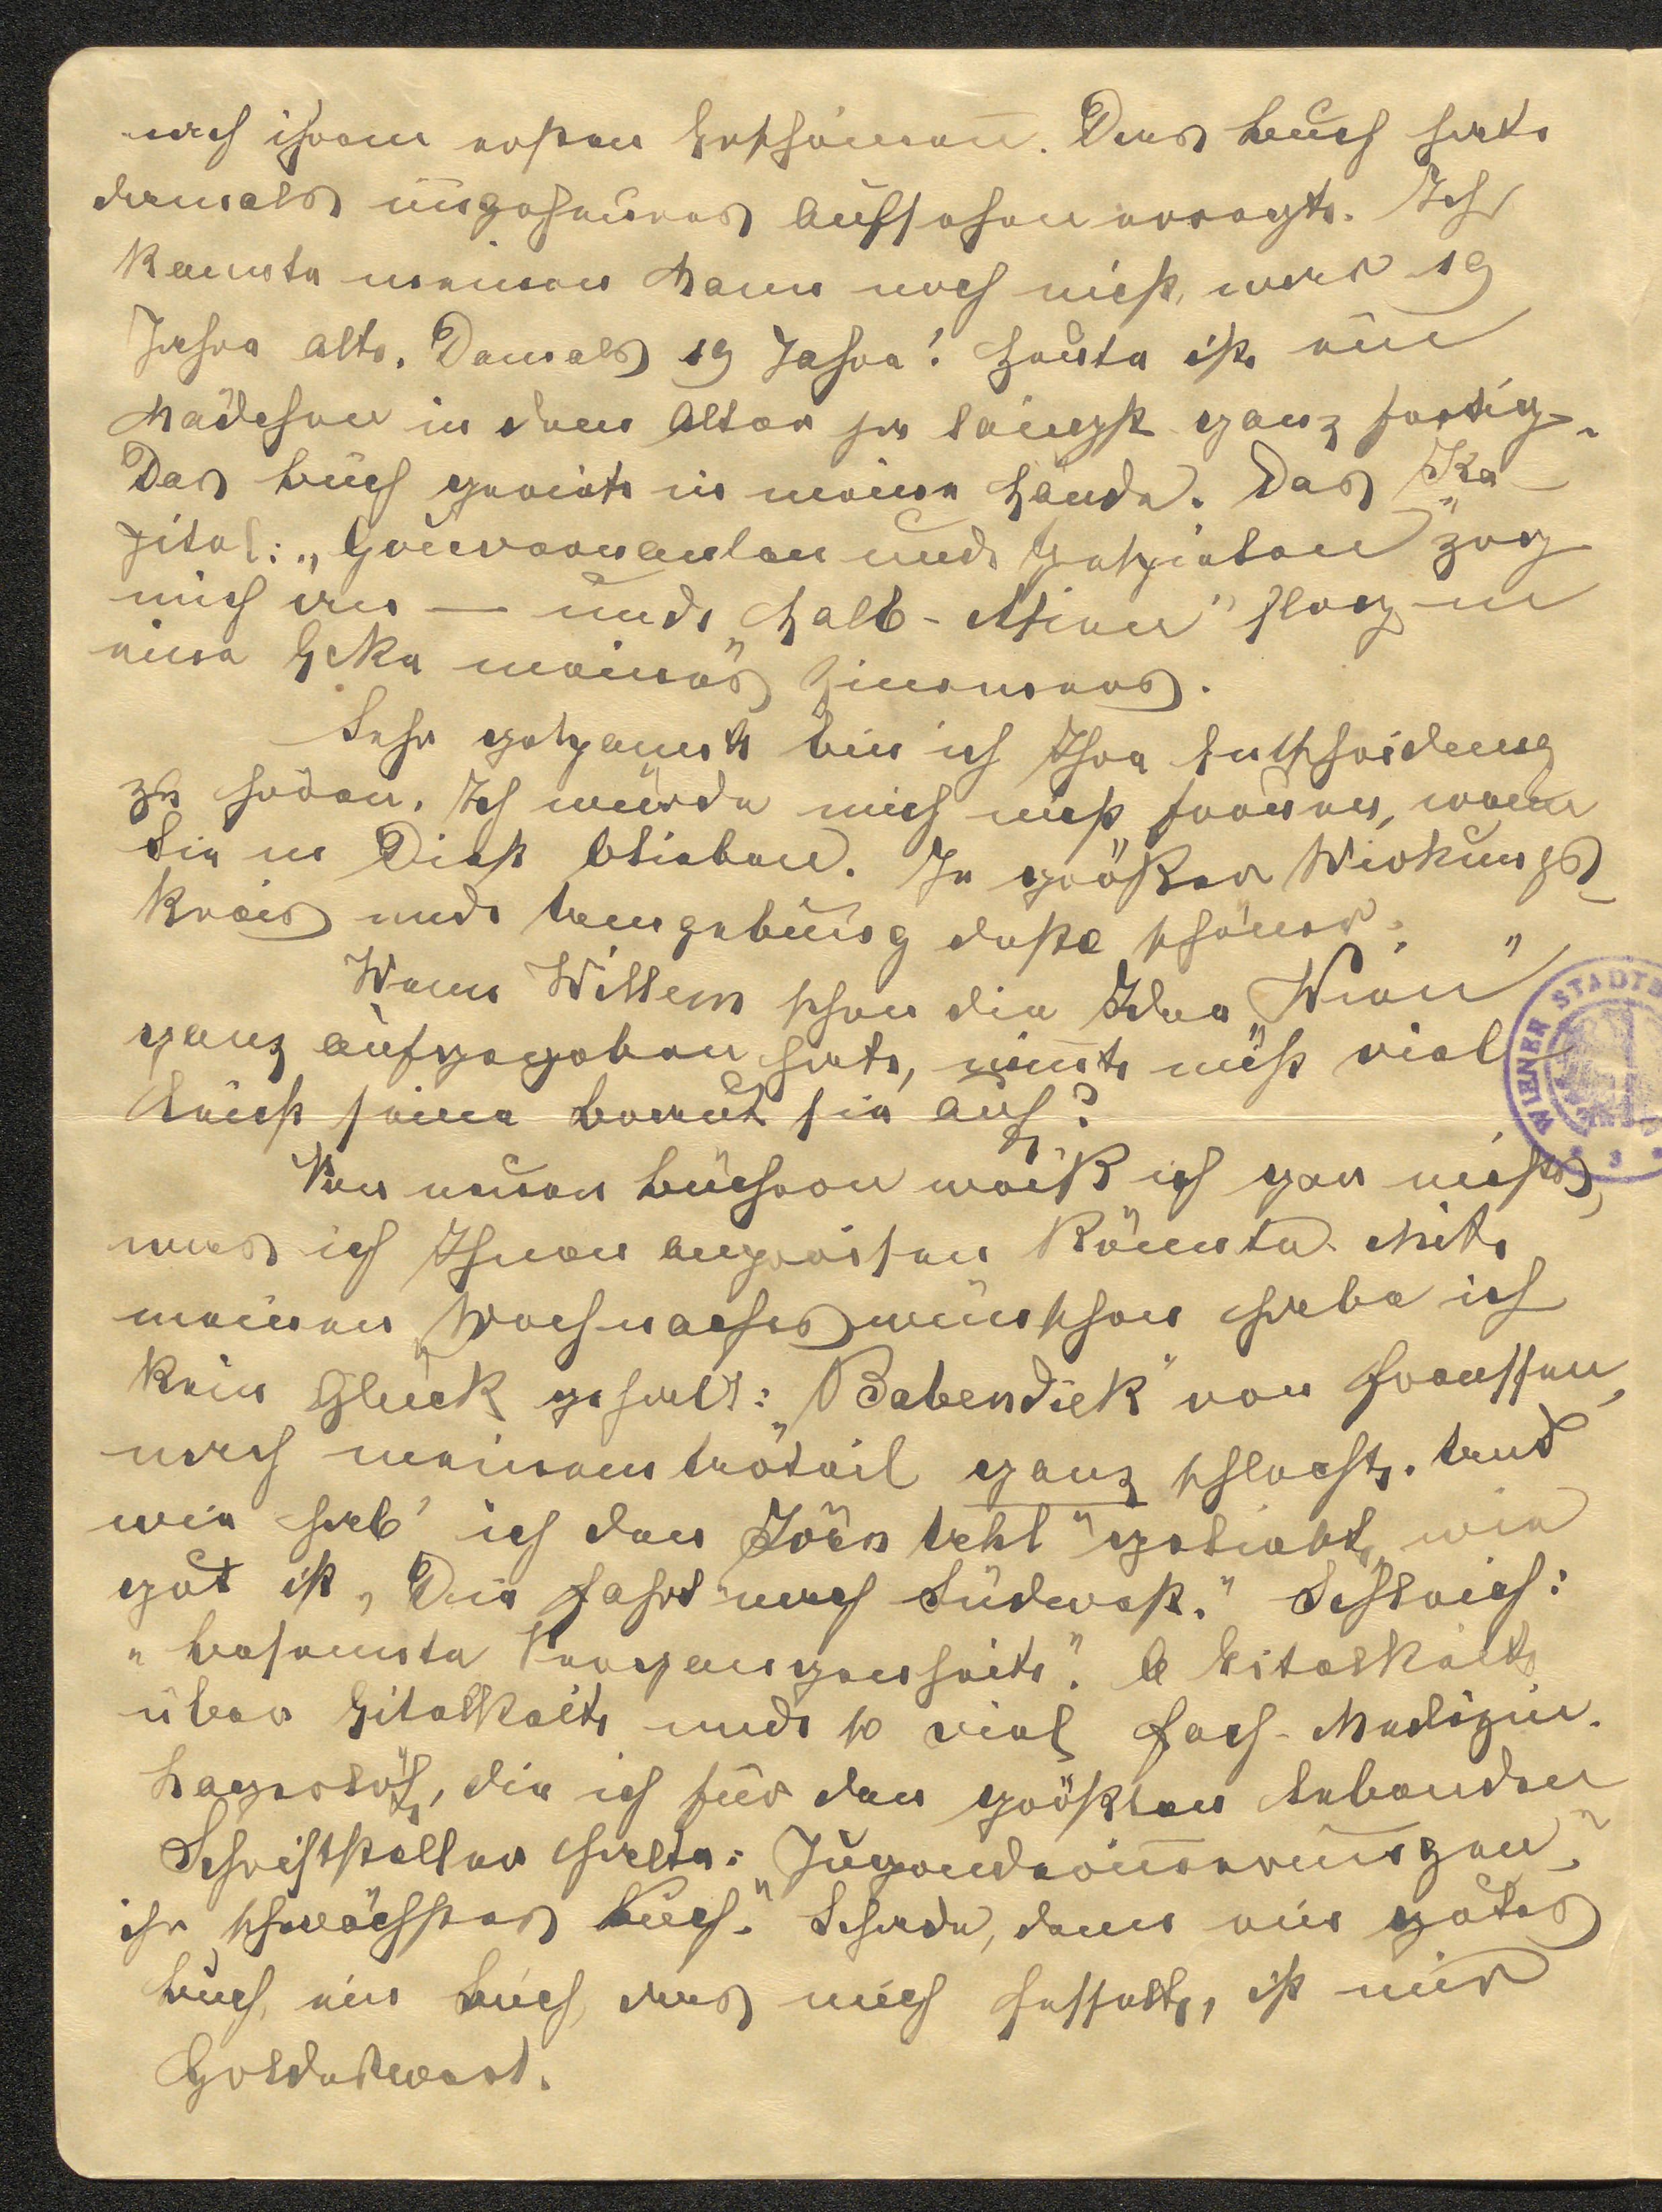 nach ihrem ersten Erscheinen. Das Buch hat
damals ungeheures Aufsehen erregt. Ich
kannte meinen Mann noch nicht, war 19
Jahre alt. Damals 19 Jahre! Heute ist ein
Mädchen in dem Alter ja längst ganz fertig.
Das Buch geriet in meine Hände. Das Ka-
pitel: „Gouvernanten und Gespielen" zog
mich an — und „Halb-Asien" flog in
eine Ecke meines Zimmers.
Sehr gespannt bin ich Ihre Entscheidung
zu hören. Ich würde mich nicht freuen, wenn
Sie in Diest blieben. Je größer Wirkungs-
kreis und Umgebung desto schöner.
Wenn Willem schon die Idee „Wien"
ganz aufgegeben hat, nimmt nicht viel-
leicht seine Braut sie auf?
Von neuen Büchern weiß ich gar nichts,
was ich Ihnen anpreisen könnte. Mit
meinen Weihnachtswünschen habe ich
kein Glück gehabt: „Babendiek" von Frenssen,
nach meinem Urteil ganz schlecht. Und
wie hab' ich den „Jörn Uhl" geliebt, wie
gut ist „Die Fahrt nach Südwest." Schleich:
„Besonnte Vergangenheit". Eitelkeit
über Eitelkeit und so viel Fach-Medizin.
Lagerlöf, die ich für den größten lebenden
Schriftsteller halte: „Jugenderinnerungen",
ihr schwächstes Buch. Schade, denn ein gutes
Buch, ein Buch, das mich fesselt, ist mir
Goldeswert.
WIENER STADTB